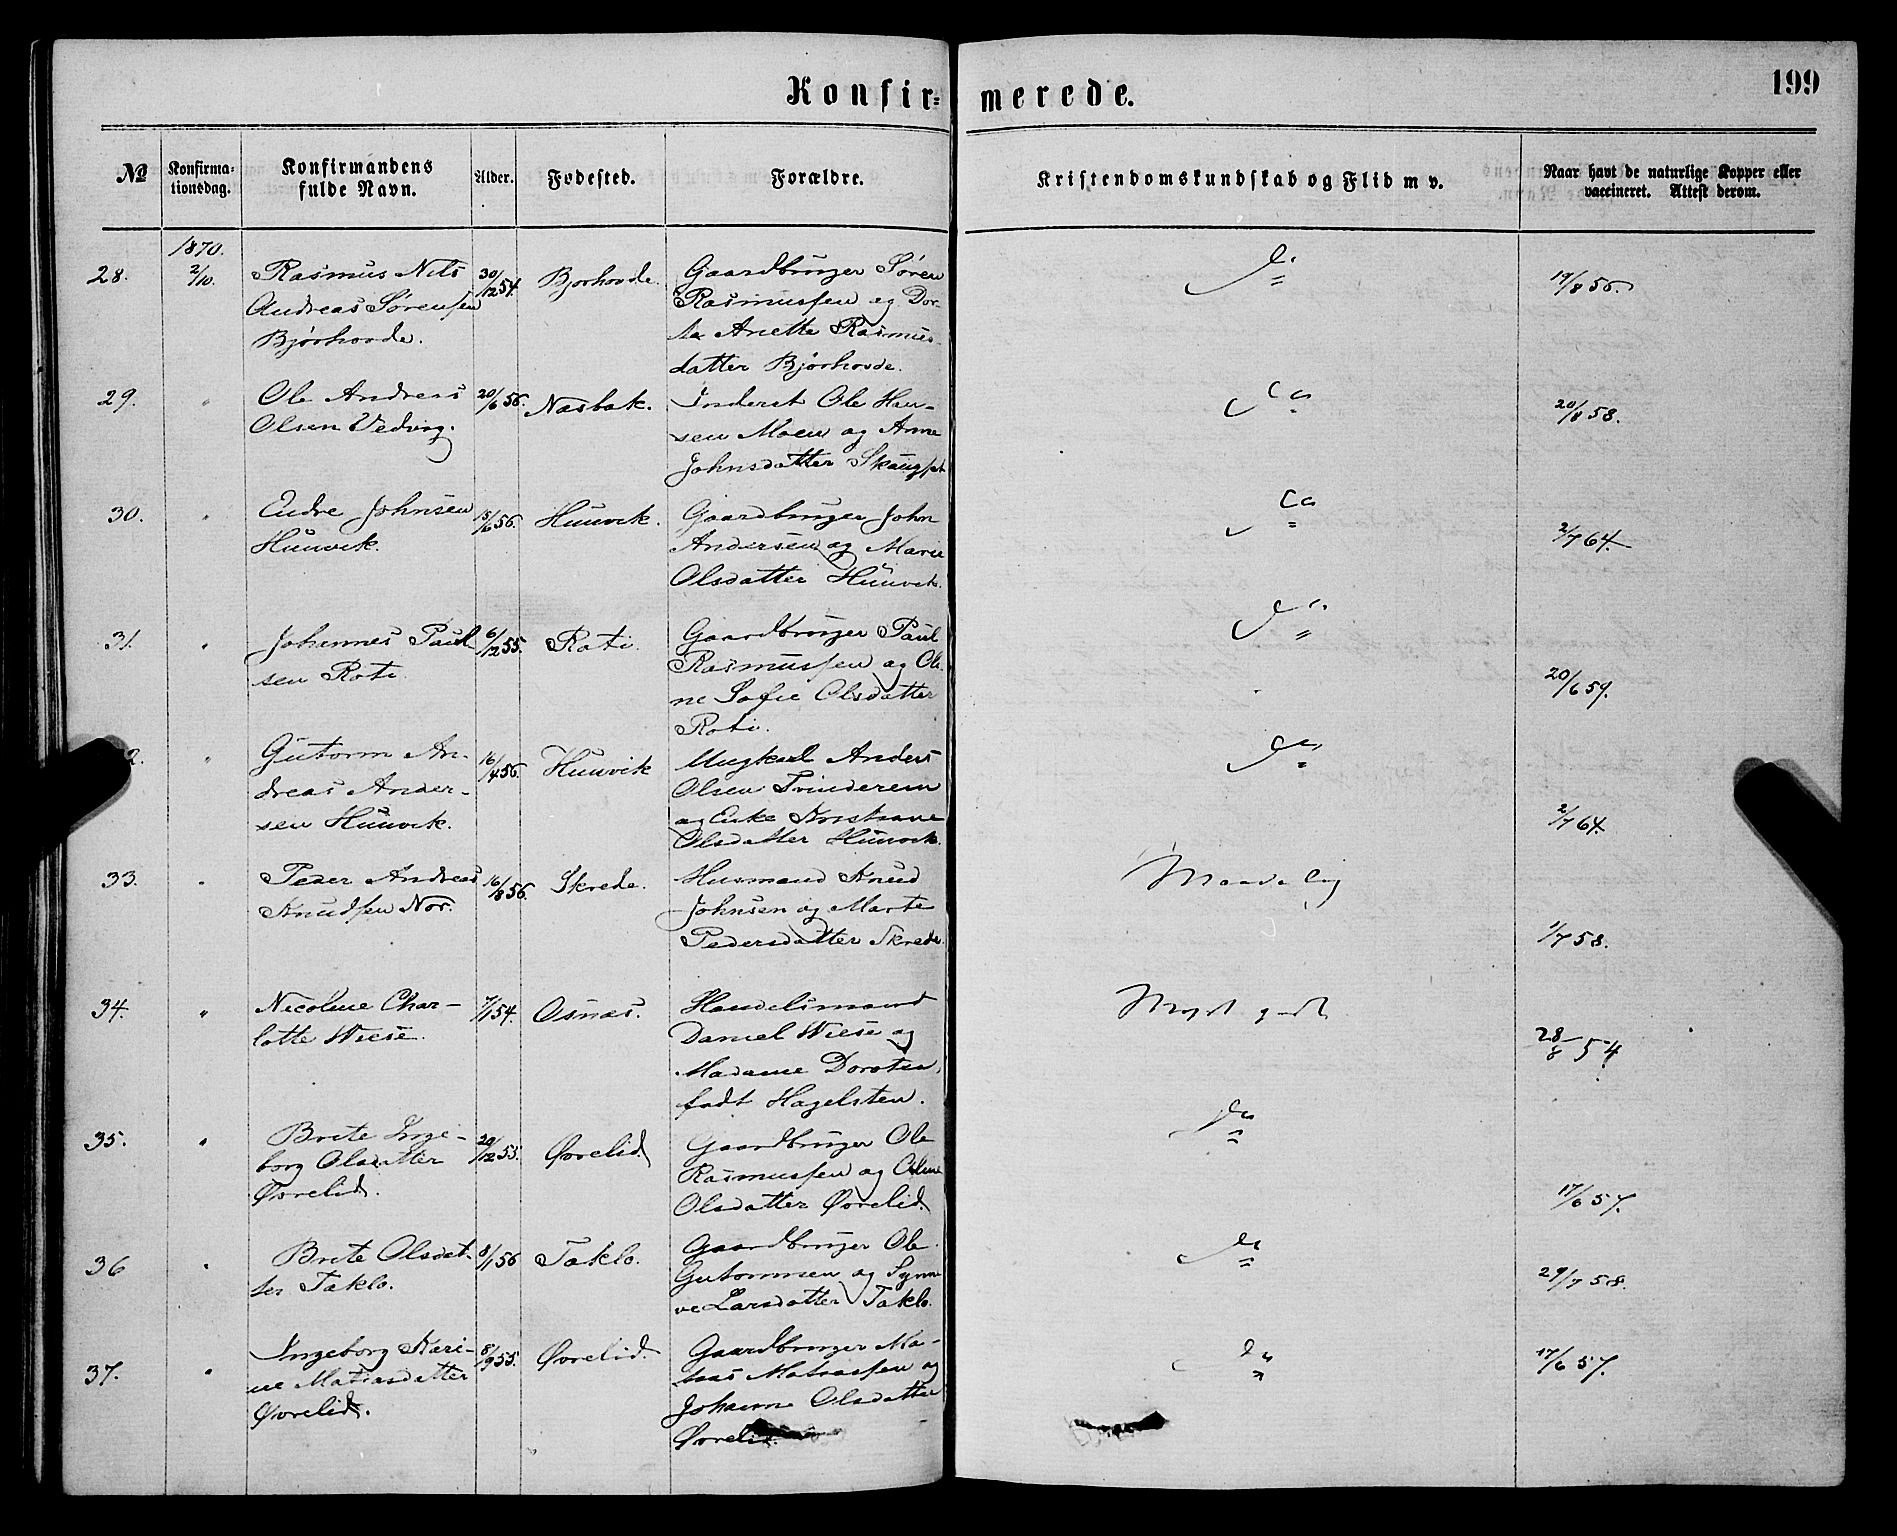 Konfir-
merede.
199
№
Konfirma-
tionsdag.
Konfirmandens
fulde Navn.
Alder.
Fødested.
Forældre.
Kristendomskundskab og Flid m v.
Naar havt de naturlige Kopper eller
vaccineret. Attest derom.
1870.
28.
2/10.
Rasmus Nils
Andreas Sørensen
Bjørhovde.
30/12 54.
Bjorhovde.
Gaardbruger Søren
Rasmussen og Dor-
te Anette Rasmus-
datter Bjørhovde.
19/8 56.
29.
"
Ole Andreas
Olsen Vedvig.
20/6 56.
Nasbak.
Inderst Ole Han-
sen Moen og Anne
Johnsdatter
20/8 58.
30.
"
Endre Johnsen
Hunvik.
15/6 56.
Hunvik.
Gaardbruger John
Andersen og Marie
Olsdatter Hunvik.
2/7 64.
31.
"
Johannes Paul-
sen Roti
6/12 55.
Roti.
Gaardbruger Paul
Rasmussen og Oli-
ne Sofie Olsdatter
Roti.
20/6 59.
2.
"
Gutorm An-
dreas Ander-
sen Hunvik.
16/4 56.
Hunvik
Ungkarl Anders
Olsen Tvinderein
og Enke Kristiane
Olsdatter Hunvik.
2/7 64.
33.
"
Peder Andreas
Knudsen Nor.
16/8 56.
Skrede.
Husmand Knud
Johnsen og Marte
Pedersdatter Skrede.
Maadelig
1/7 58.
34.
"
Nicoline Char-
lotte Wiese.
7/1 54.
Osnæs.
Handelsmand
Daniel Wiese og
Madame Dorotea,
født Hagelsten.
Meget godt
28/8 54
35.
"
Brite Inge-
borg Olsdatter
Øvrelid.
29/12 55.
Øvrelid.
Gaardbruger Ole
Rasmussen og Oline
Olsdatter Øvrelid.
17/6 57.
36
"
Brite Olsdat-
ter Taklo.
8/1 56
Taklo.
Gaardbruger Ole
Gutormsen og Synne-
ve Larsdatter Taklo.
29/7 58
37.
"
Ingeborg Kari-
ne Matiasdatter
Øvrelid.
8/9 55.
Øvrelid.
Gaardbruger Ma-
tias Matiassen og
Johanne Olsdatter
Øvrelid.
17/6 57.